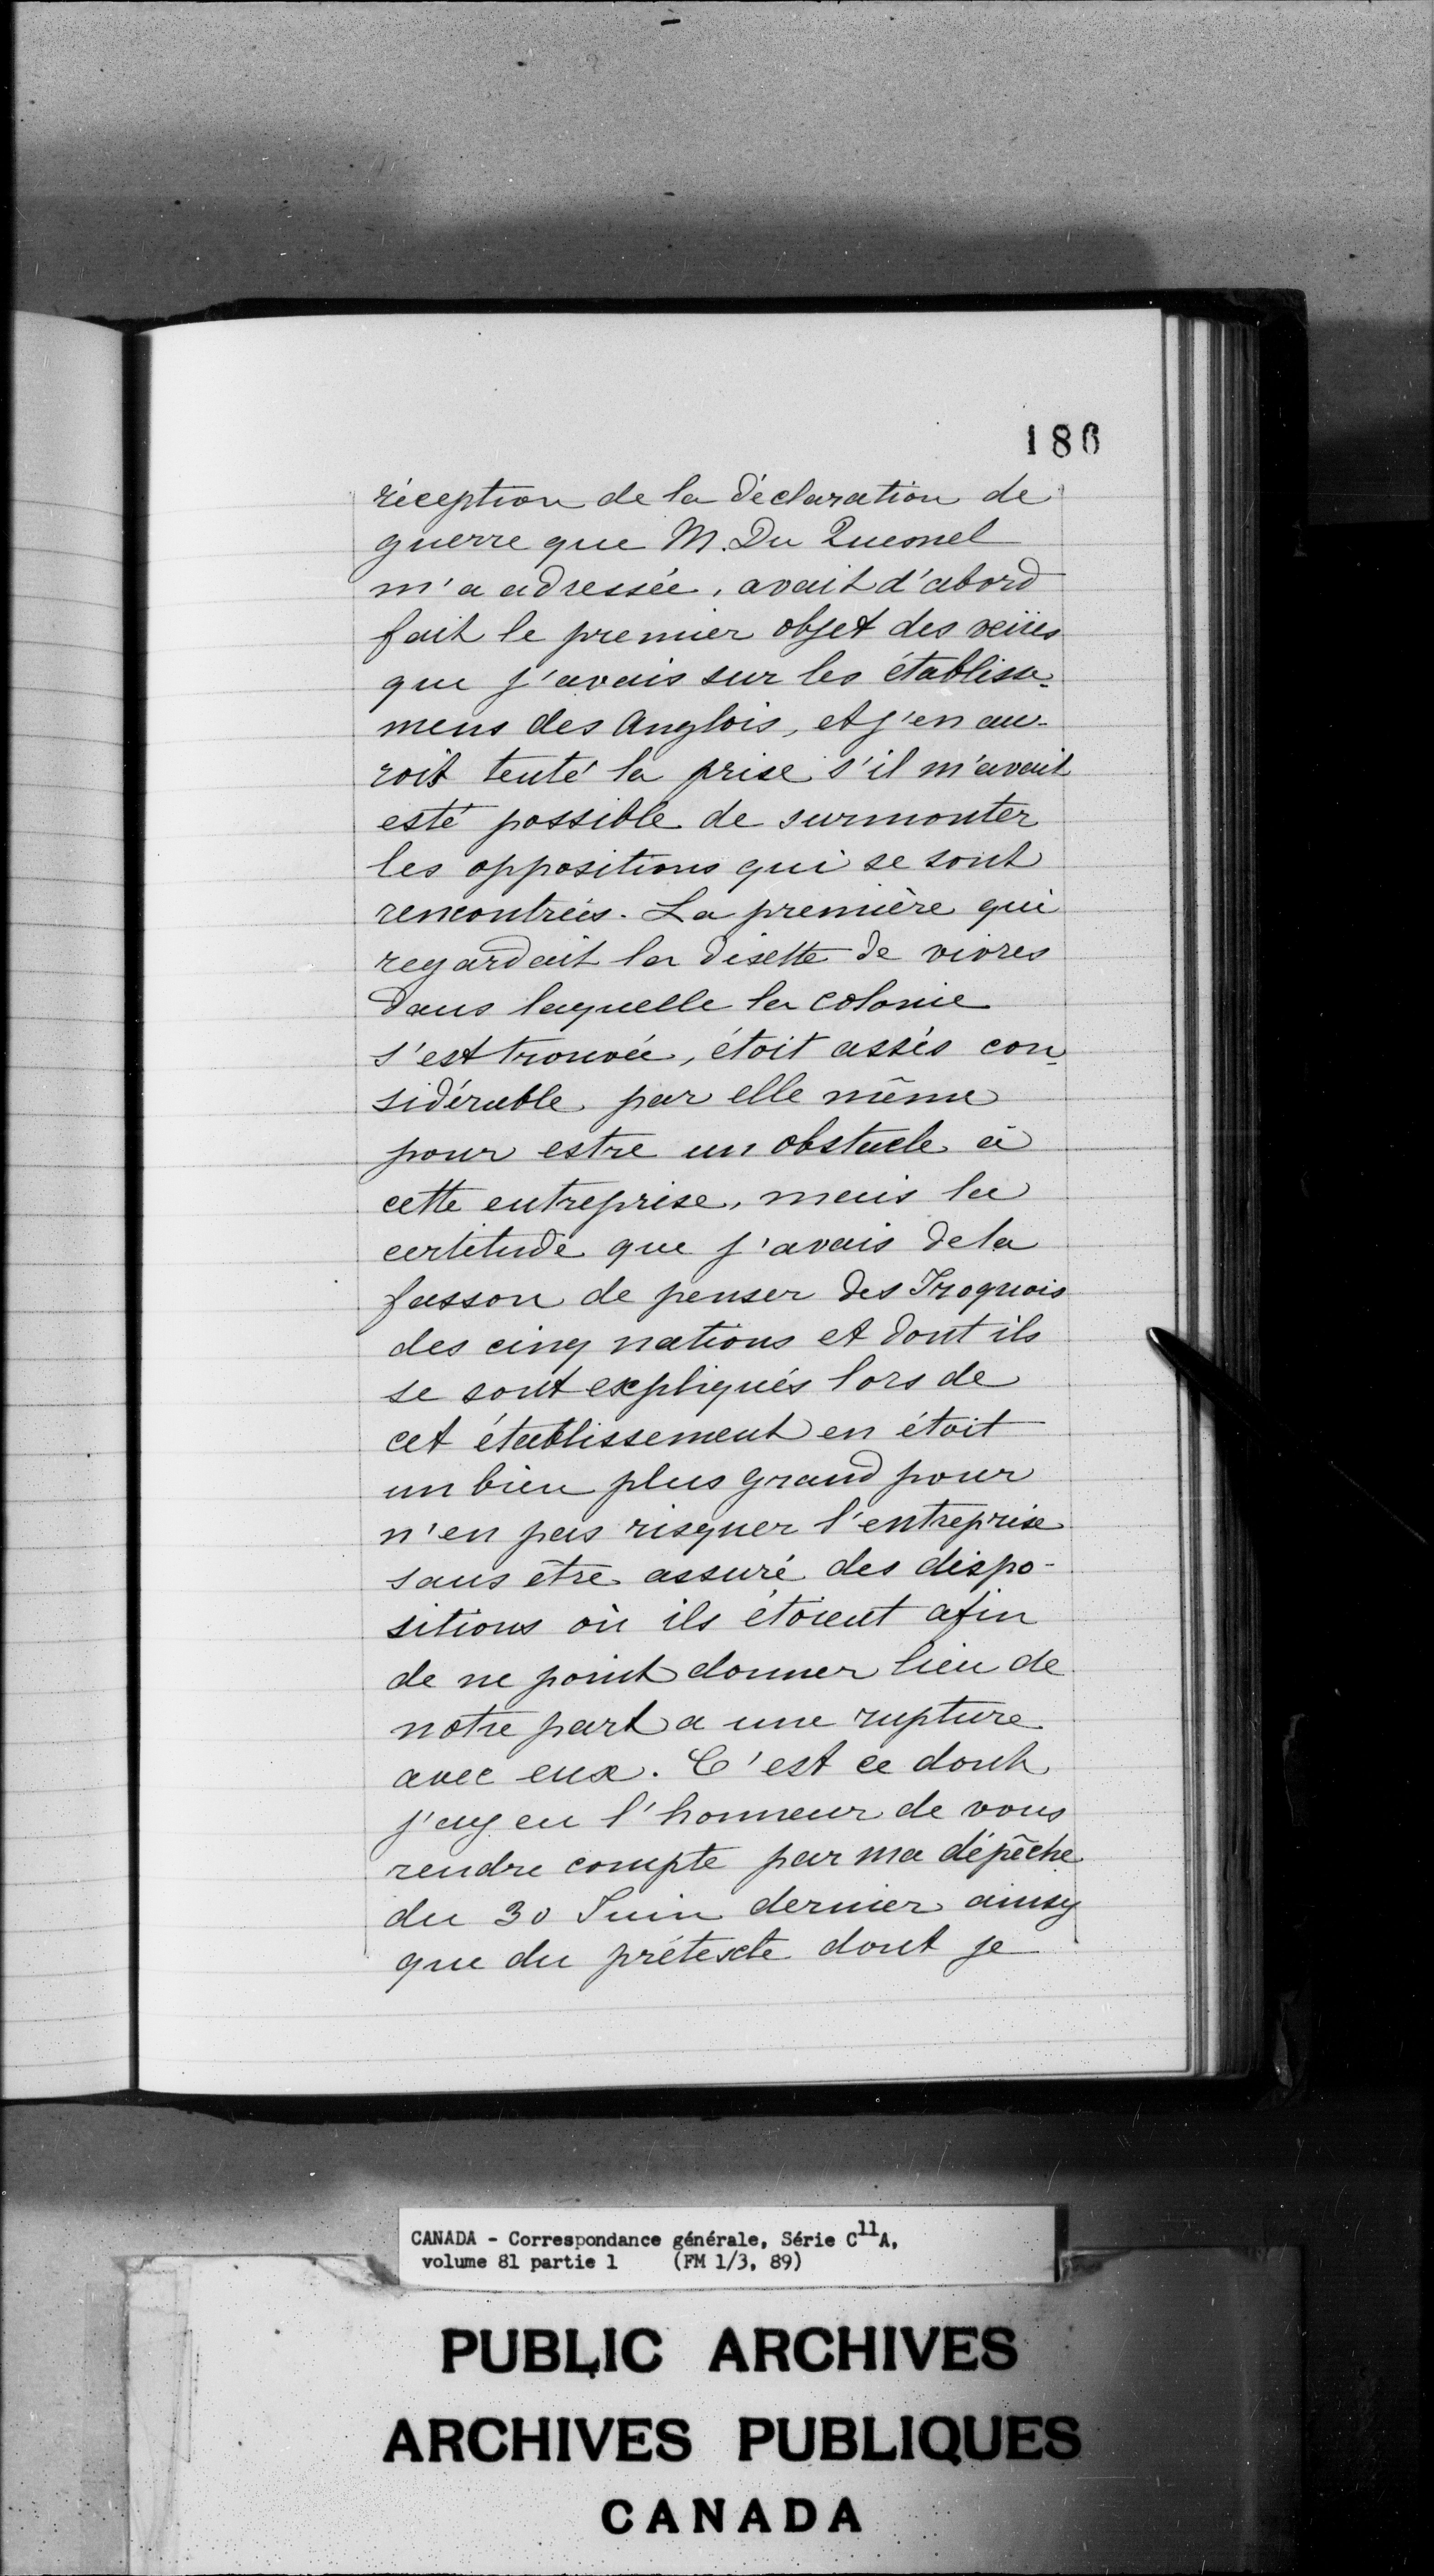 186
réception de la déclaration de
guerre que M. Du Quesnel
m'a adressée, avait d'abord
fait le premier objet des veües
que j'avais sur les établisse-
mens des Anglois, et j'en au-
roit tenté la prise s'il m'avait
esté possible de surmonter
les oppositions qui se sont
rencontrées. La première qui
regardait la disette de vivres
dans laquelle la colonie
s'est trouvée, étoit assés con-
sidérable par elle même
pour estre un obstacle à
cette entreprise, mais la
certitude que j'avais de la
fasson de penser des Iroquois
des cinq nations et dont ils
se sont expliqués lors de
cet établissement en étoit
un bien plus grand pour
n'en pas risquer l'entreprise
sans être assuré des dispo-
sitions où ils étoient afin
de ne point donner lieu de
notre part a une rupture
avec eux. C'est ce dont
j'ay eu l'honneur de vous
rendre compte par ma dépêche
du 30 Juin dernier ainsy
que du prétexte dont je
CANADA - Correspondance générale, Série C11A,
volume 81 partie 1 (FM 1/3, 89)
PUBLIC ARCHIVES
ARCHIVES PUBLIQUES
CANADA